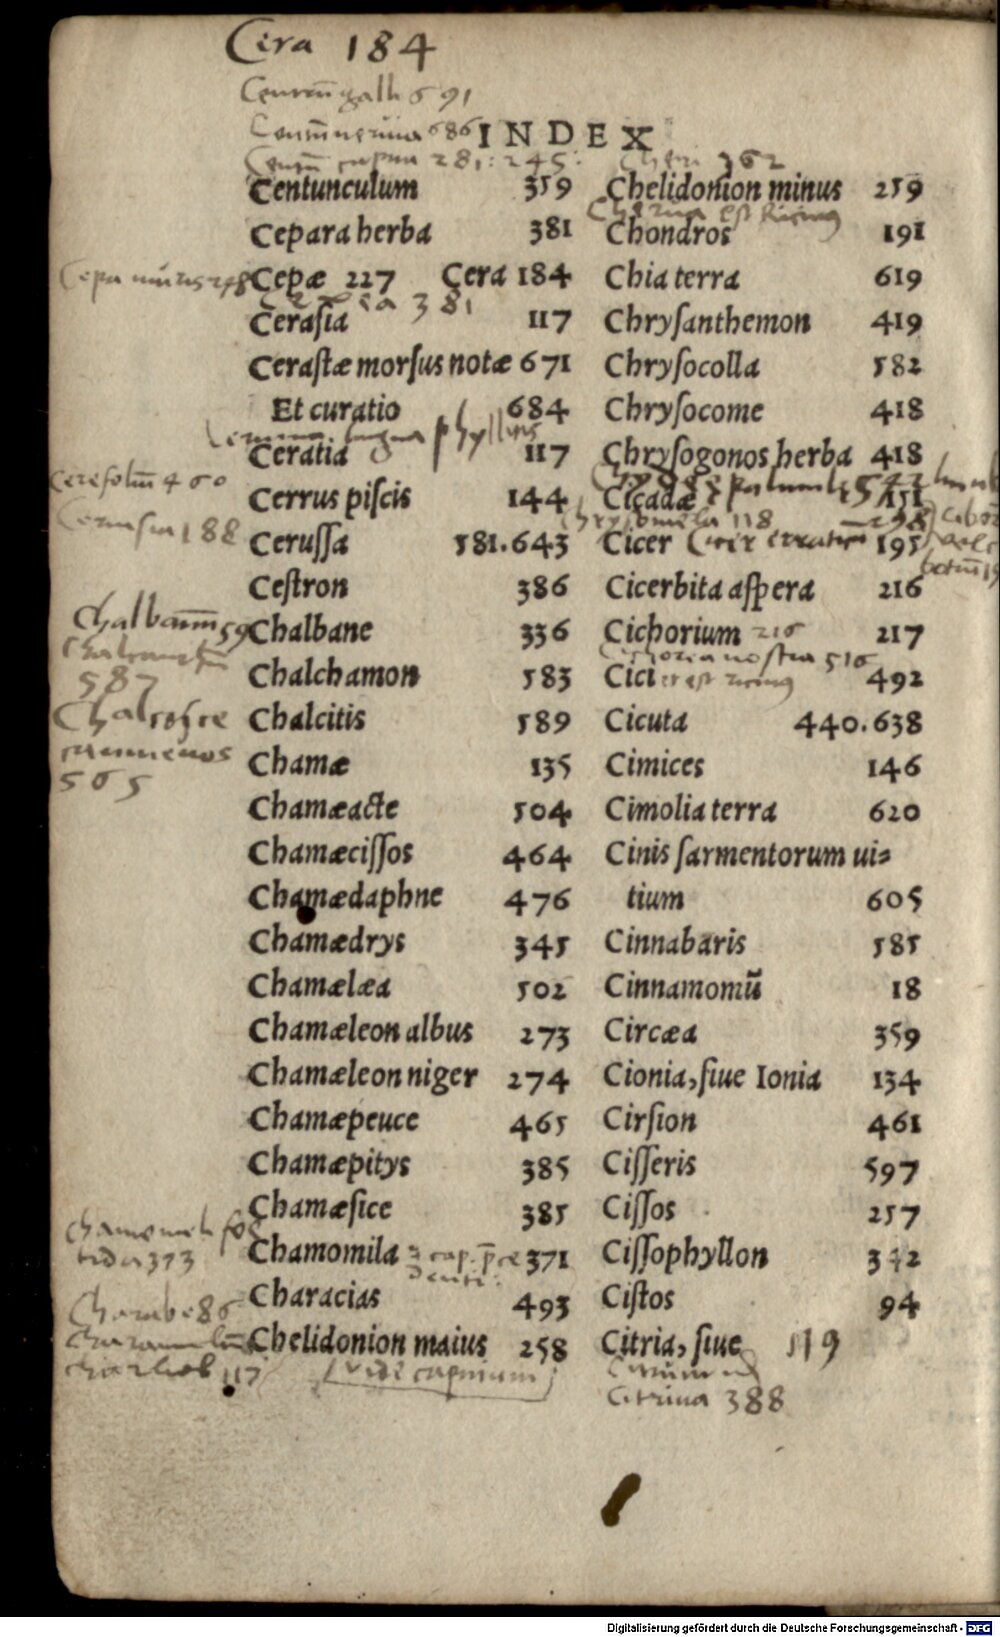 Cera 184
galli 691
686 INDEX
281: 245: 362
Centunculum 359
Cepara herba 381
Cepa muris 248 Cepæ 227 Cera 184
381
Cerasia 117
Cerastæ morſus notæ 671
Et curatio 684
lingua phyllitis
Ceratia 117
Cerefoliū 460
Cerrus piſcis 144
188
Ceruſſa 581.643
Ceſtron 386
Chalbanū 59 Chalbane 336
587
Chalchamon 583
Chalcitis 589
565
Chamæ 135
Chamæacte 504
Chamæciſſos 464
Chamædaphne 476
Chamædrys 345
Chamælæa 502
Chamæleon albus 273
Chamæleon niger 274
Chamæpeuce 465
Chamæpitys 385
Chamæſice 385
373
Chamomila 371
Charabe 86
Characias 493
Chelidonion maius 258
117 vide capnium
Chelidonion minus 259
est Ricinus
Chondros 191
Chia terra 619
Chryſanthemon 419
Chryſocolla 582
Chryſocome 418
Chryſogonos herba 418
Cicadæ 151
Chrysomela 118
Cicer Cicer erraticū 195
Cicerbita aſpera 216
Cichorium 216 217
nostra 516
Cici est ricinus 492
Cicuta 440.638
Cimices 146
Cimolia terra 620
Cinis ſarmentorum ui⸗
tium 605
Cinnabaris 585
Cinnamomū 18
Circæa 359
Cionia, ſiue Ionia 134
Cirſion 461
Ciſſeris 597
Ciſſos 257
Ciſſophyllon 342
Ciſtos 94
Citria, ſiue 119
Citrina 388
Digitalisierung gefördert durch die Deutsche Forschungsgemeinschaft - DFG